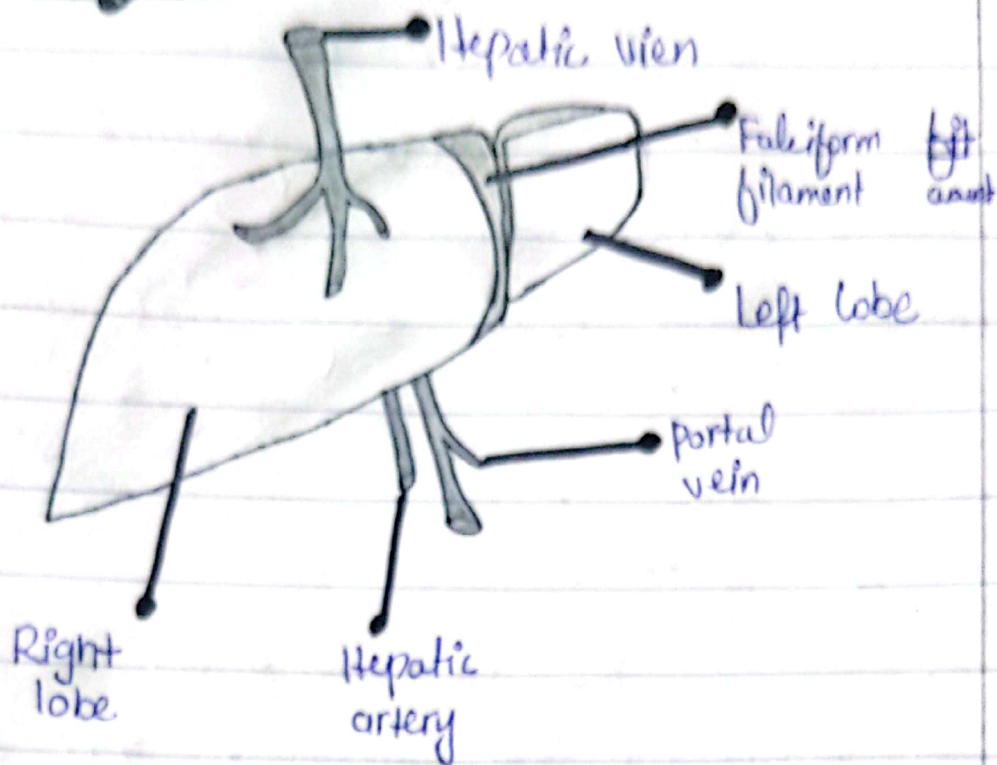 Hepatic vien
Falciform
filament
Left lobe
portal
vein
Right
lobe
Hepatic
artery